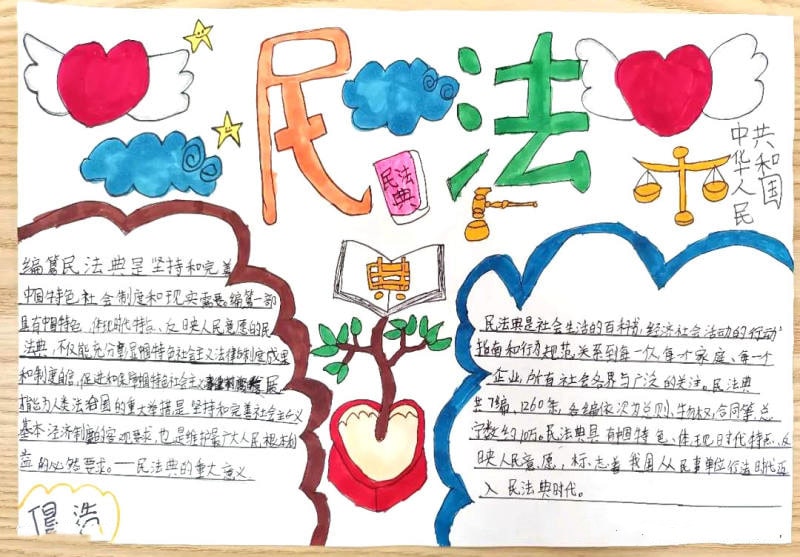 民法
民法典
中华人民
共和国
编篡民法典是坚持和完善
中国特色社会制度和现实需要。编篡一部
具有中国特色、体现时代特点、反映人民意愿的民
法典,不仅能充分彰显中国特色社会主义法律制度成果
和制度自信,促进和保障中国特色社会主义
为人类法治的重大举措是坚持和完善社会主义
基本经济制度的客观要求,也是维护最广大人民根本利
益的必然要求。——民法典的重大意义
民法典是社会生活的百科书,经济社会活动的行动
指南和行为规范,关系到每一个人、每个家庭、每一个
企业,所有社会各界与广泛的关注。民法典
共7编,1260条,各编依次为总则、物权、合同等,总
字数约10万。民法典具有中国特色、体现时代特点、反
映人民意愿,标志着我国从民事单位行法时代迈
入民法典时代。